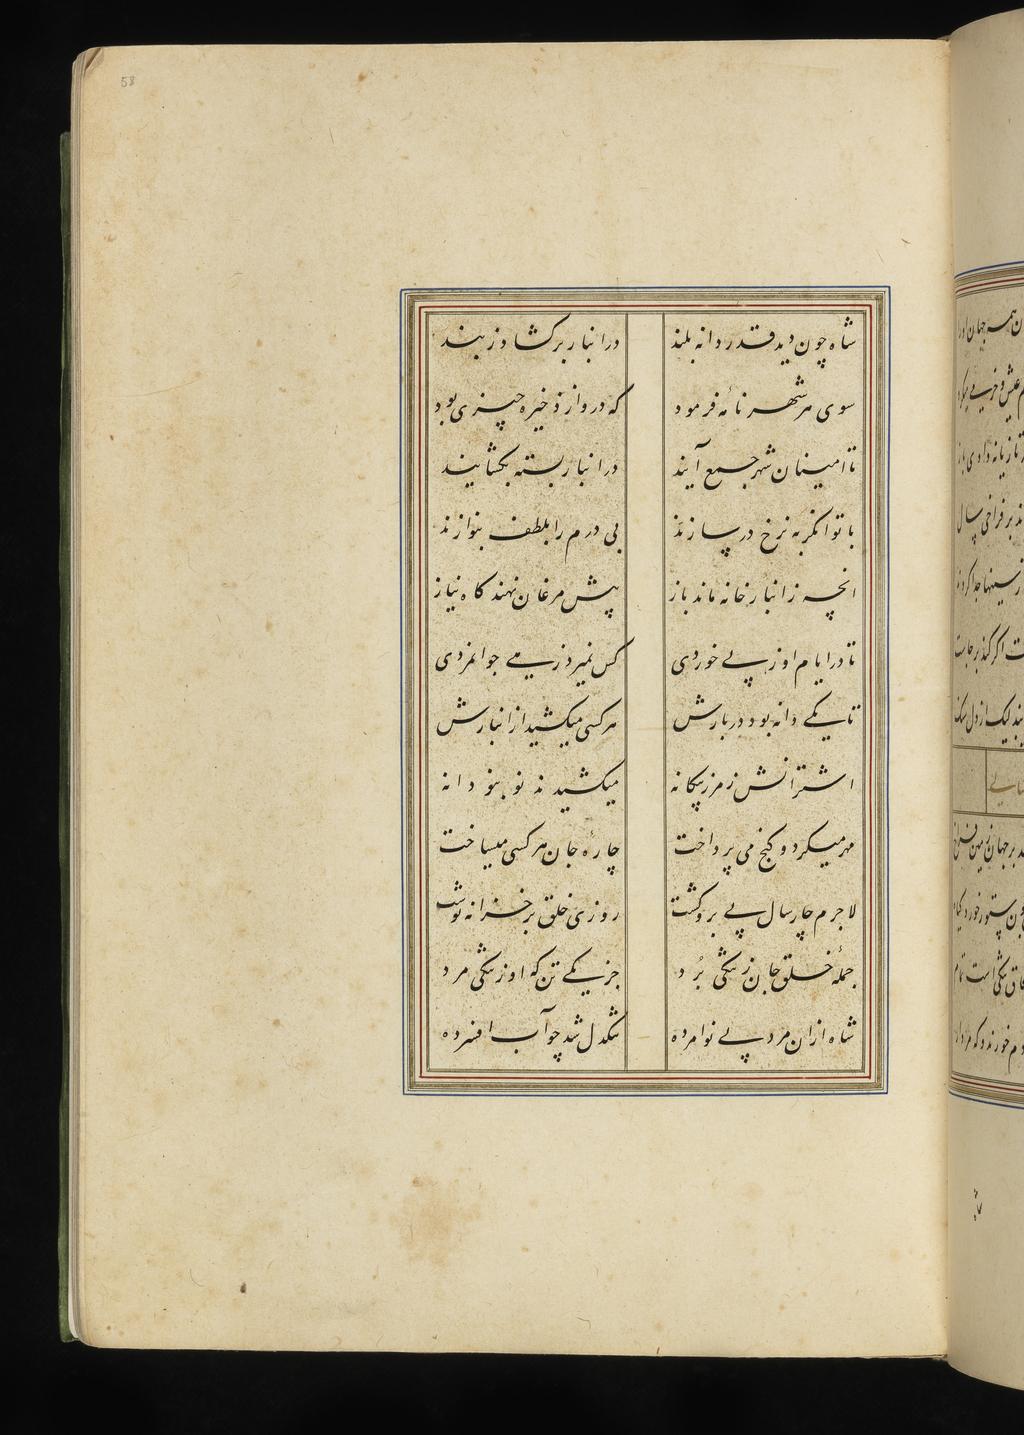 58
شاه چون دید قدر دانه بلند در انبار برگشاد ز بند
سوی هر شهر نامه فرمود که در و از ذخیره چیزی بود
تا امینان شهر جمع آیند در انبار بسته بگشایند
با توانگر به نرخ در سازند بی درم را بلطف بنوازند
انچه ز انبار خانه ماند باز پیش مرغان نهند کاه نیاز
تا در ایام او ز بی خوردی کس نمیرد زهی جوانمردی
تا یکی دانه بود در بارش هر کسی میکشید از انبارش
اشترانش ز مرز بیگانه میکشیدند نو بنو دانه
مهر میکرد و گنج می پرداخت چاره جان هر کسی میساخت
لاجرم چار سال بی بر و کشت روزی خلق بر خزانه نوشت
جمله خلق جان ز تنگی برد جز یکی تن که او ز تنگی مرد
شاه ازان مرد بی نوا مرده تنگدل شد چو آب افسرده